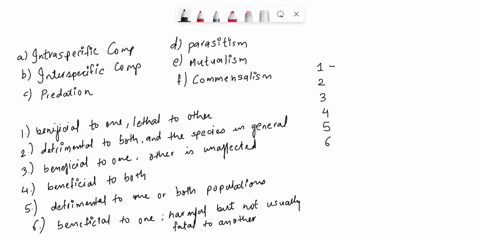 a) Intraspecific Comp
b) Interspecific Comp
c) Predation
d) parasitism
e) Mutualism
f) Commensalism
1.) benificial to one, lethal to other
2.) detrimental to both, and the species in general
3.) beneficial to one, other is unaffected
4.) beneficial to both
5.) detrimental to one or both populations
6.) beneficial to one; harmful but not usually
fatal to another
1 -
2
3
4
5
6